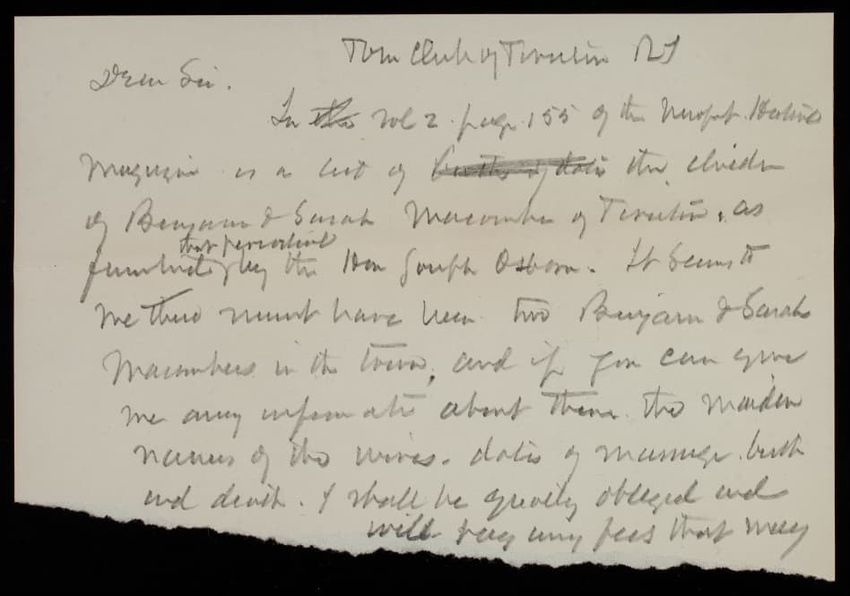 Town Clerk of Tiverton RI
Dear Sir.
In the vol 2. page 155 of the Newport Historical
Magazine is a list of births & dates the children
of Benjamin & Sarah Macomber of Tiverton, as
that periodical
furnished by the Hon Joseph Osborn. It seems to
me there must have been two Benjamin & Sarah
Macombers in the town, and if you can give
me any information about them. the maiden
names of the wives. dates of marriage birth
and death. I shall be greatly obliged and
will pay any fees that may